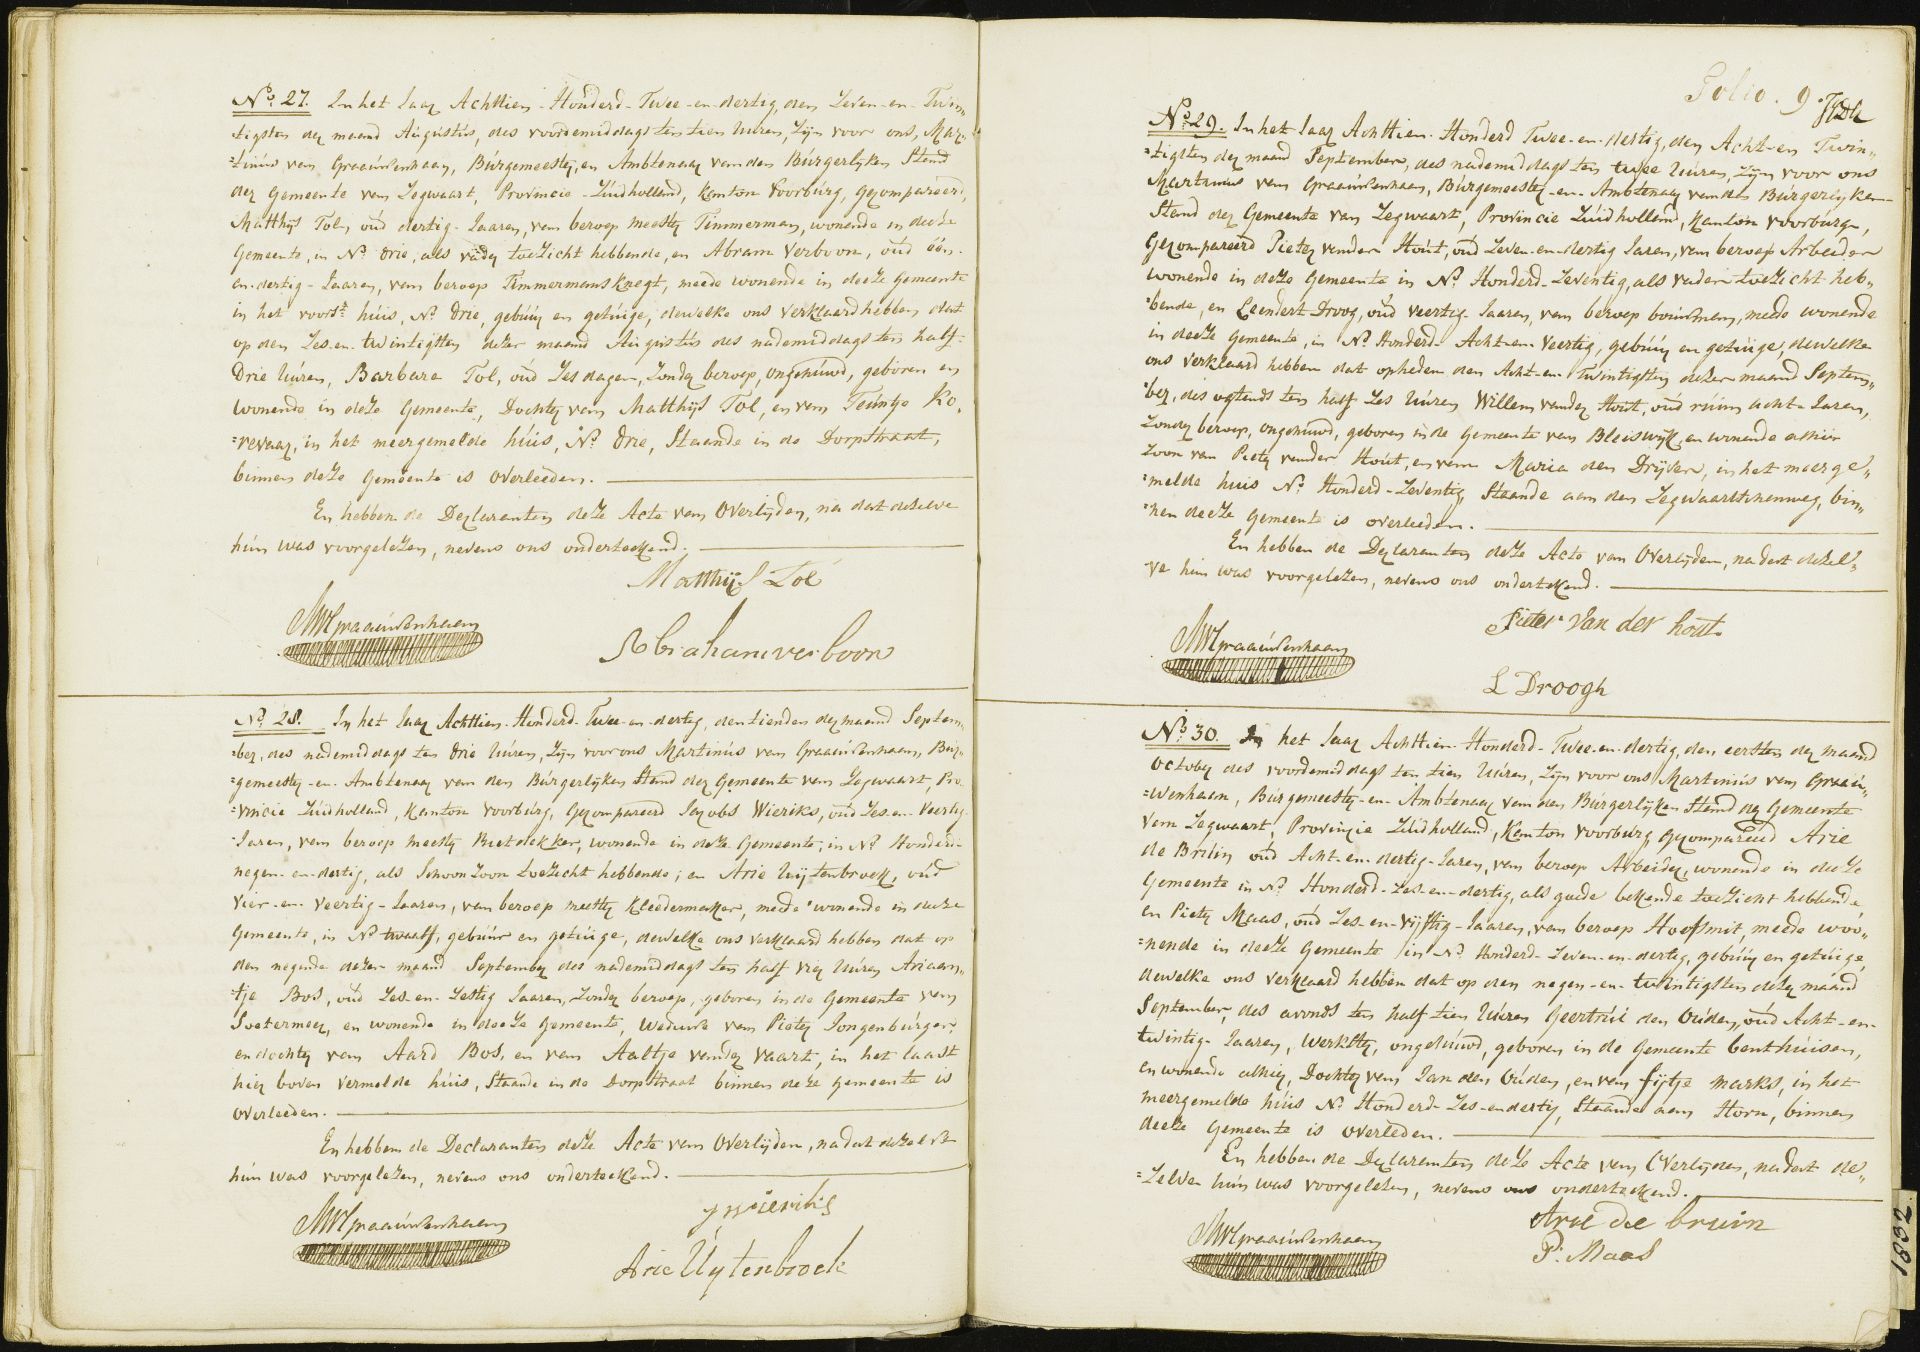 No. 27. In het Jaar Achttien-Honderd-Twee-en-dertig, den Zeven-en-Twin„
tigsten der maand Augustus, des voordemiddags ten tien Uuren, Zijn voor ons, Mar„
=tinus van Graauwenhaan, Burgemeester, en Ambtenaar van den Burgerlyken Stand
der Gemeente van Zegwaart, Provincie-Zuidholland, Kanton Voorburg, Gecompareerd,
Matthijs Tol, oud dertig-Jaaren, van beroep meester Timmerman, wonende in deeze
Gemeente, in No. drie, als vader toezicht hebbende, en Abram Verboon, oud één-
en-dertig-Jaaren, van beroep Timmermansknegt, meede wonende in deeze Gemeente
in het voorst. huis, No. drie, gebuur en getuige, dewelke ons Verklaard hebben dat
op den Zes-en-twintigsten dezer maand Augustus des nademiddags ten half-
Drie Uuren, Barbara Tol, oud Zes dagen, Zonder beroep, ongehuwd, geboren en
wonende in deze Gemeente, Dochter van Matthijs Tol, en van Teuntje Ko„
=revaar, in het meergemelde huis, No. drie, Staande in de Dorpstraat,
binnen deze Gemeente is Overleeden.
En hebben de Declaranten deze Acte van Overlijden, na dat dezelve
hun was voorgelezen, nevens ons onderteekend.
Matthijs Tol
MVGraauwenhaan
Abraham verboon
No. 28. In het Jaar Achttien-Honderd-Twee-en-dertig, den tienden der maand Septem„
=ber, des nademiddags ten drie Uuren, Zijn voor ons Martinus van Graauwenhaan, Bur„
=gemeester-en-Ambtenaar van den Burgerlyken Stand der Gemeente van Zegwaart, Pro„
=vincie Zuidholland, Kanton Voorburg, Gecompareerd Jacobs Wieriks, oud Zes-en-Veertig
-Jaren, van beroep meester Rietdekker, wonende in deze Gemeente, in No. Honderd-
negen-en-dertig, als Schoonzoon toezicht hebbende; en Arie Uijtenbroek, oud
Vier-en-Veertig-Jaaren, van beroep meester Kleedermaker, meede wonende in deeze
Gemeente, in No. twaalf, gebuur en getuige, dewelke ons verklaard hebben dat op
den negende dezer maand September des nademiddags ten half vier Uuren Ariaan„
=tje Bos, oud Zes-en-Zestig Jaaren, Zonder beroep, geboren in de Gemeente van
Soetermeer, en wonende in deeze Gemeente, Weduwe van Pieter Jongenburger,
en dochter van Aard Bos, en van Aaltje van der Vaart, in het laast
hier boven vermelde huis, Staande in de Dorpstraat binnen deze Gemeente is
Overleeden.
En hebben de Declaranten deze Acte van Overlijden, na dat dezelve
hun was voorgelezen, nevens ons onderteekend.
J Wieriks
MVGraauwenhaan
Arie Uijtenbroek
Folio. 9
No. 29. In het Jaar Achttien-Honderd Twee-en-dertig, den Acht-en Twin„
=tigsten der maand September, des nademiddags ten twee Uuren, Zijn voor ons
Martinus van Graauwenhaan, Burgemeester-en-Ambtenaar van den Burgerlyken-
Stand der Gemeente van Zegwaart, Provincie Zuidholland, Kanton Voorburg,
Gecompareerd Pieter van der Hout, oud Zeven-en-dertig Jaren, van beroep Arbeider
wonende in deze Gemeente in No. Honderd-Zeventig, als vader toezicht heb„
=bende, en Leendert Droog, oud Veertig-Jaaren, van beroep bouwman, meede wonende
in deeze Gemeente, in No. Honderd-Acht-en-Veertig, gebuur en getuige, dewelke
ons Verklaard hebben dat op heden den Acht-en-Twintigsten dezer maand Septem„
=ber, des ogtends ten half Zes Uuren Willem van der Hout, oud ruim acht-Jaren,
Zonder beroep, ongehuwd, geboren in de Gemeente van Bleiswijk, en wonende alhier
Zoon van Pieter van der Hout, en van Maria den Drijver, in het meerge„
=melde huis No. Honderd-Zeventig, Staande aan den Zegwaartschenweg, bin„
=nen deeze Gemeente is overleeden.
En hebben de Declaranten deze Acte van Overlijden, na dat dezel„
=ve hun was voorgelezen, nevens ons ondertekend.
Pieter Van der hout
MVGraauwenhaan
L Droogh
No. 30. In het Jaar Achttien-Honderd-Twee-en-dertig, den eersten der maand
October des voordemiddags ten tien Uuren, Zijn voor ons Martinus van Graau„
=wenhaan, Burgemeester-en-Ambtenaar van den Burgerlyken Stand der Gemeente
Van Zegwaart, Provincie Zuidholland, Kanton Voorburg Gecompareerd Arie
de Bruin oud Acht-en-dertig-Jaren, van beroep Arbeider, wonende in deeze
Gemeente in No. Honderd-Zes-en-dertig, als goede bekende toezicht hebbende
en Pieter Maas, oud Zes-en-vijftig-Jaaren, van beroep Hoefsmit, meede woo„
=nende in deeze Gemeente in No. Honderd-Zeven-en-dertig, gebuur en getuige,
dewelke ons Verklaard hebben dat op den negen-en-twintigsten dezer maand
September, des avonds ten half tien Uuren Geertrui den Ouden, oud Acht-en-
twintig-Jaaren, Werkster, ongehuuwd, geboren in de Gemeente benthuisen,
en wonende alhier, Dochter van Jan den Ouden, en van Fijtje Marks, in het
meergemelde huis No. Honderd-Zes-en dertig, Staande aan Horn, binnen
deeze Gemeente is Overleden.
En hebben de Declaranten deze Acte van Overlijden, na dat de„
=zelven hun was voorgelezen, nevens ons onderteekend.
Arie de bruin
MVGraauwenhaan
P. Maas
1832